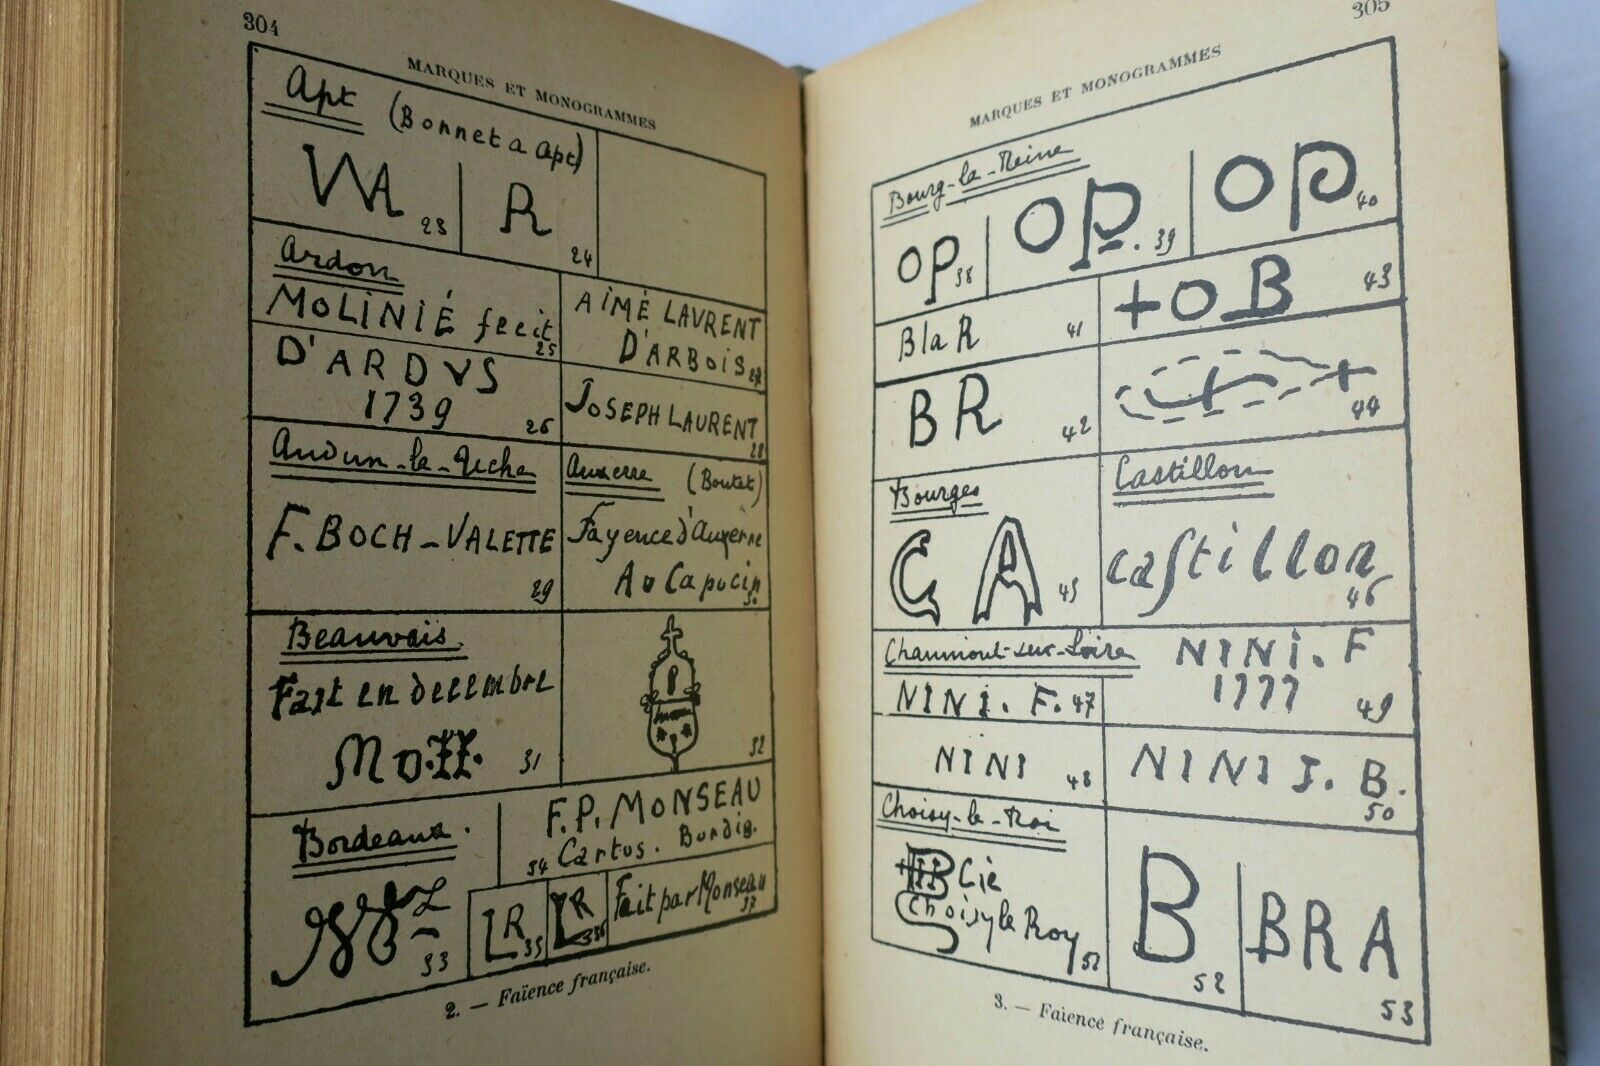 304
MARQUES ET MONOGRAMMES
Apt (Bonnet a Apt)
23
R
24
Ardon
MOLINIÉ fecit
25
AIMÉ LAVRENT
D'ARBOIS
27
D'ARDVS
1739
26
JOSEPH LAURENT
28
Audun-le-Tiche
F. BOCH-VALETTE
29
Auxerre (Boutet)
Fayence d'Auxerre
Au Capucin
30
Beauvais
Fait en decembre
31
32
Bordeaux.
33
F.P. MONSEAU
34 Cartus. Burdig.
LR 35
LR 36
Fait par Monseau
37
2. — Faïence française.
305
MARQUES ET MONOGRAMMES
Bourg-la-Reine
OP 38
OP. 39
OP 40
BlaR 41
+OB 43
BR 42
44
Bourges
CA 45
Castillon
caſtillon
46
Chaumont-sur-Loire
NINI. F
1777
49
NINI. F. 47
NINI 48
NINI J. B.
50
Choisy-le-Roi
Cie
Choisy le Roy
51
B
52
BRA
53
3. — Faïence française.